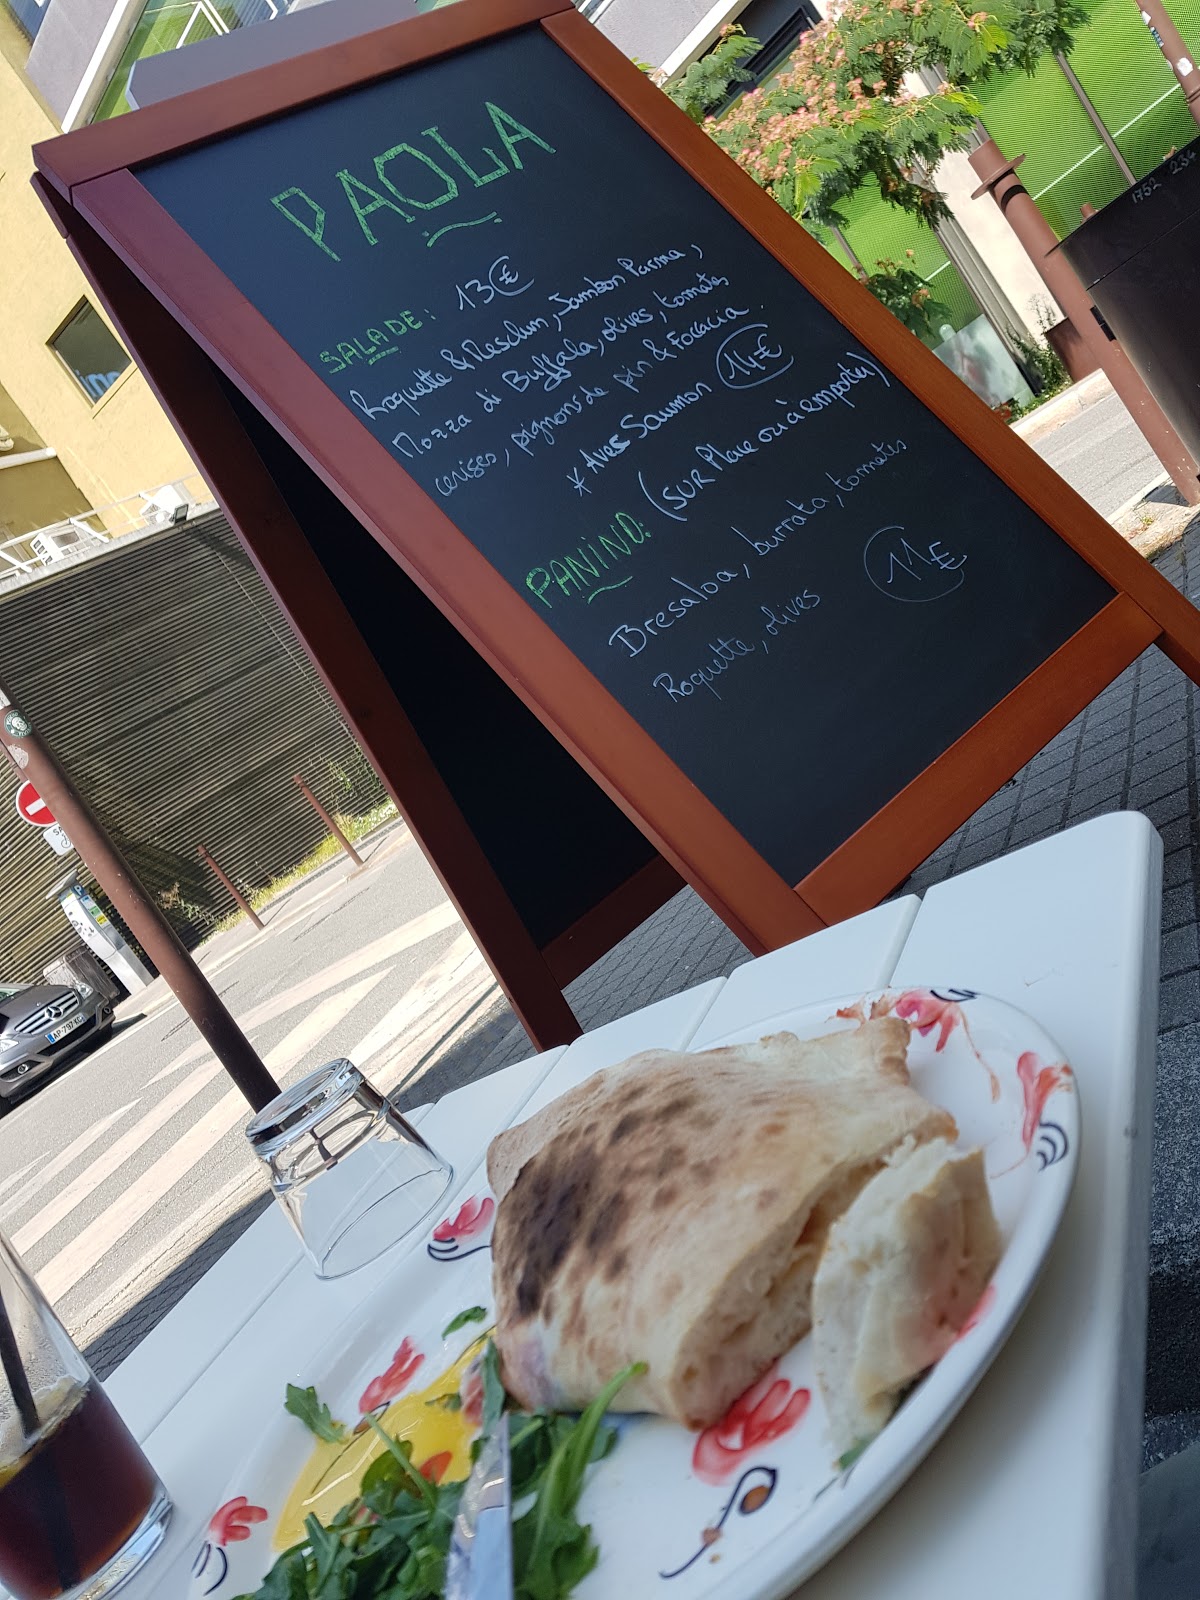 PAOLA
SALADE: 13€
Roquette & Mesclun, Jambon Parma,
Mozza di Buffala, olives, tomates
cerises, pignons de pin & Focacia.
* Avec Saumon 14€
PANINO: (SUR Place ou à emporter)
Bresaloa, burrata, tomates
Roquette, olives 11€
1752 234
AP-797-KG